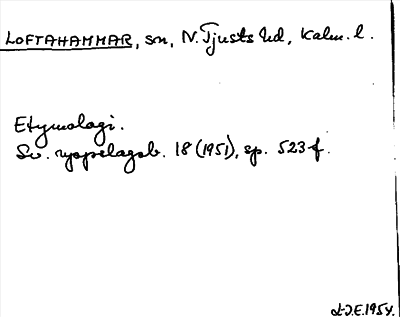 LOFTAHAMMAR, sn, N. Tjusts hd, Kalm. l.
Etymologi.
Sv. uppslagsb. 18 (1951), sp. 523 f.
1954.